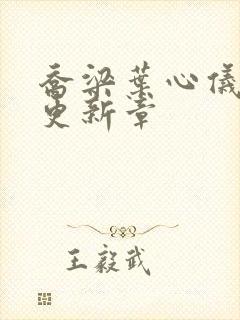 乔梁叶心仪
更新章
王毅武